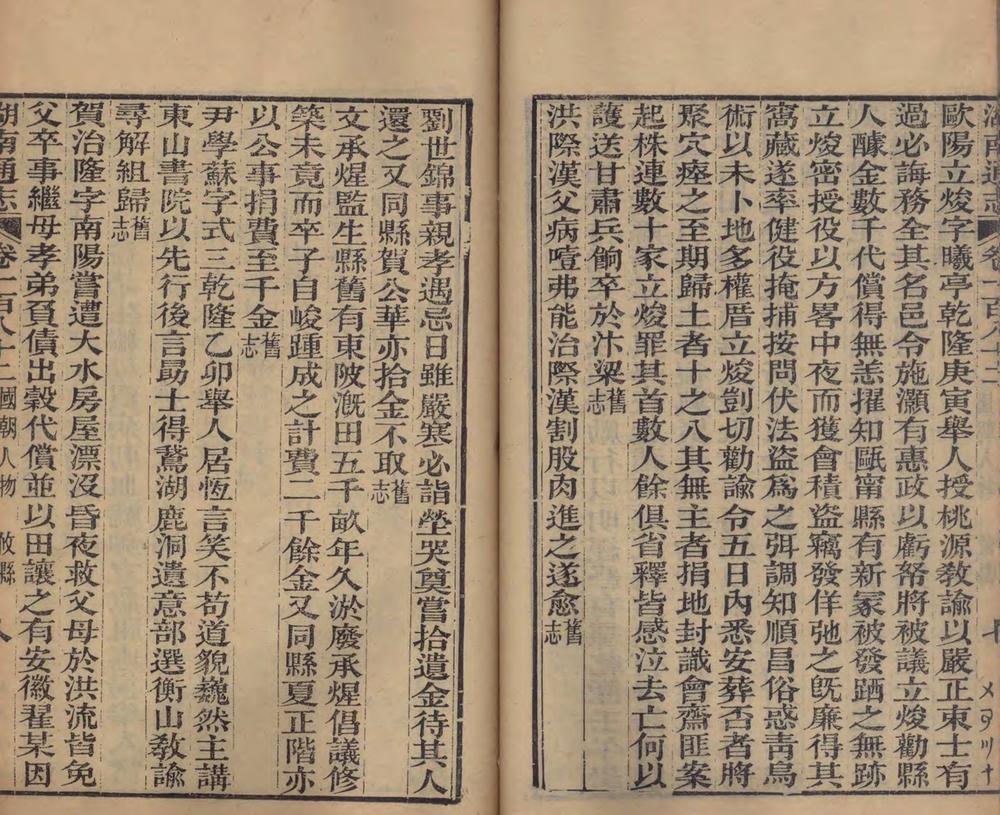 湖南通志 卷一百八十二
歐陽立焌字曦亭乾隆庚寅舉人授桃源敎諭以嚴正束士有
過必誨務全其名邑令施灝有惠政以虧帑將被議立焌勸縣
人醵金數千代償得無恙擢知甌甯縣有新冡被發跴之無跡
立焌密授役以方畧中夜而獲會積盜竊發佯弛之旣廉得其
窩藏遂率健役掩捕按問伏法盜爲之弭調知順昌俗惑靑烏
術以未卜地多權厝立焌剴切勸諭令五日內悉安葬否者將
聚穴瘞之至期歸土者十之八其無主者捐地封識會齋匪案
起株連數十家立焌罪其首數人餘俱省釋皆感泣去亡何以
護送甘肅兵餉卒於汴梁舊志
洪際漢父病噎弗能治際漢割股肉進之遂愈舊志
劉世錦事親孝遇忌日雖嚴寒必詣塋哭奠嘗拾遺金待其人
還之又同縣賀公華亦拾金不取舊志
文承煋監生縣舊有東陂漑田五千畝年久淤廢承煋倡議修
築未竟而卒子自峻踵成之計費二千餘金又同縣夏正階亦
以公事捐費至千金舊志
尹學蘇字式三乾隆乙卯舉人居恆言笑不苟道貌巍然主講
東山書院以先行後言勗士得鵞湖鹿洞遺意部選衡山敎諭
尋解組歸舊志
賀治隆字南陽嘗遭大水房屋漂沒昏夜救父母於洪流皆免
父卒事繼母孝弟負債出穀代償並以田讓之有安徽翟某因
湖南通志 卷一百八十二 國朝人物 攸縣 八